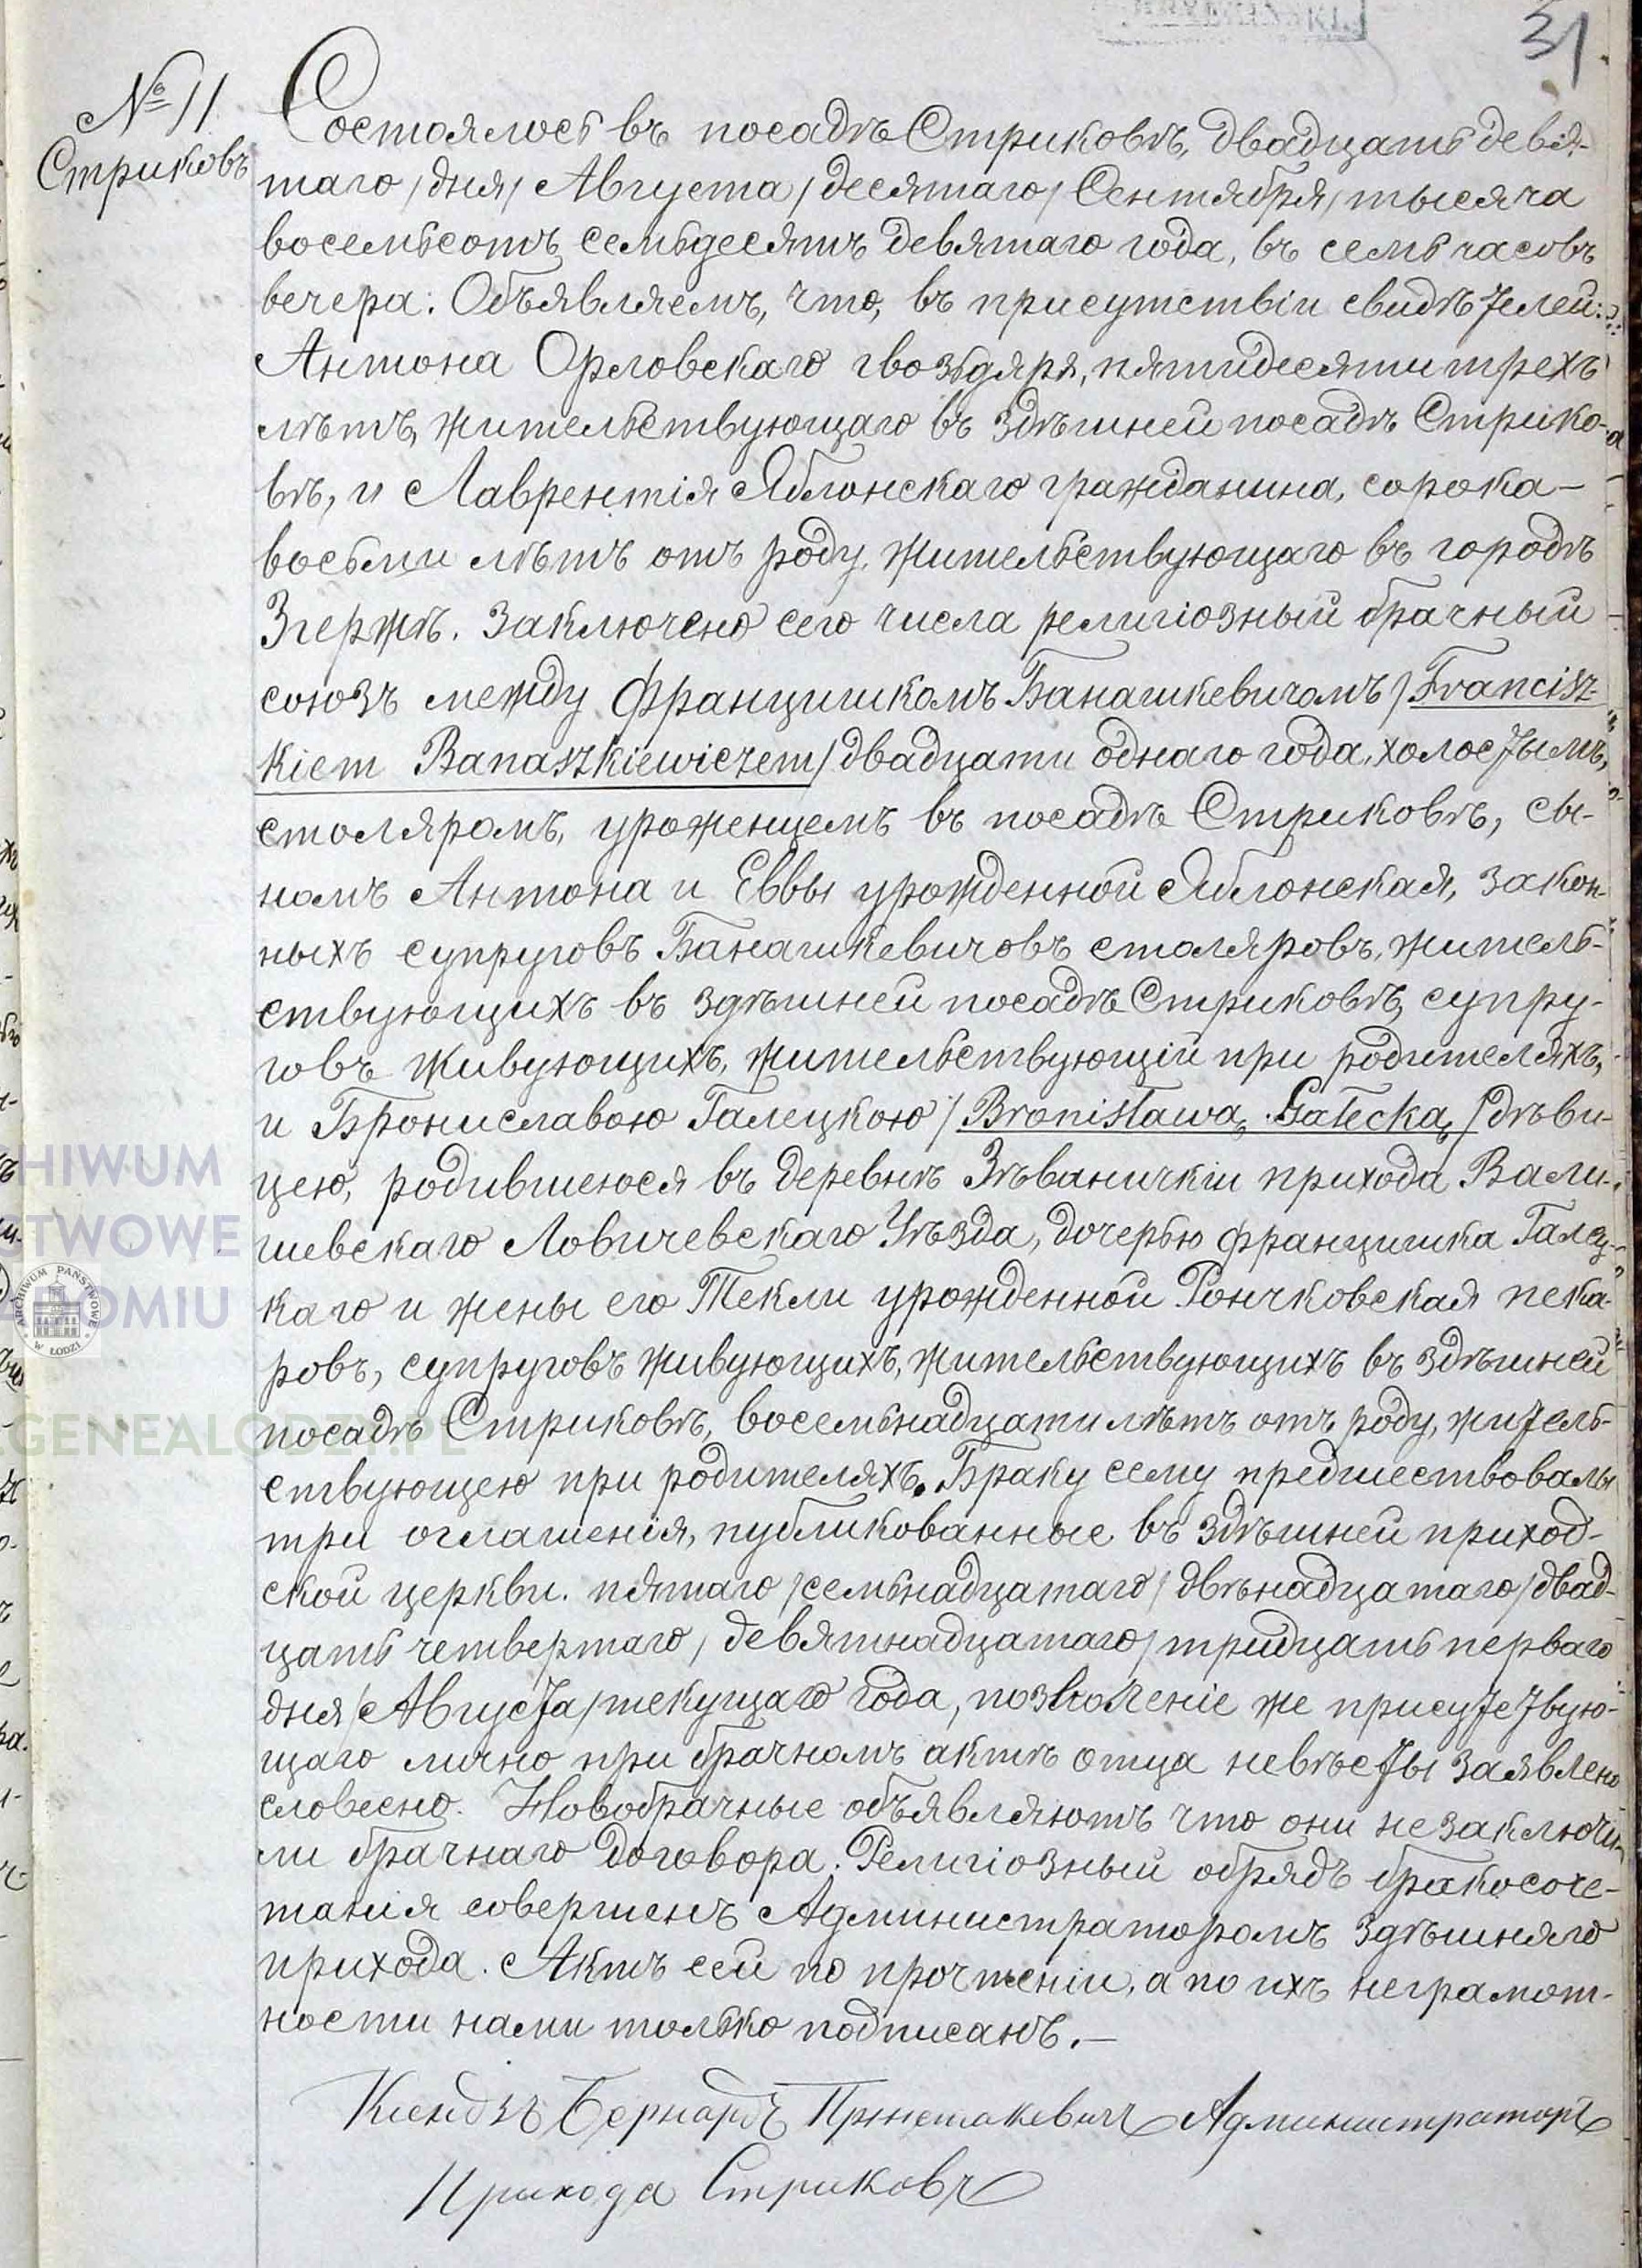 31
№ 11
Стриковъ
Состоялось въ посадѣ Стриковѣ, двадцать девя-
таго /дня/ Августа /десятаго/ Сентября /тысяча
восемьсотъ семьдесятъ девятаго года, въ семь часовъ
вечера. Объявляемъ, что, въ присутствіи свидѣтелей:
Антона Орловскаго гвоздяря, пятидесяти трехъ
лѣтъ, жительствующаго въ здѣшней посадѣ Стрико-
вѣ, и Лаврентія Яблонскаго гражданина, сорока-
восьми лѣтъ отъ роду, жительствующаго въ городѣ
Згержѣ. Заключено сего числа религіозный брачный
союзъ между Францишкомъ Банашкевичомъ /Francisz-
kiem Banaszkiewiczem/ двадцати однаго года, холостымъ,
столяромъ, уроженцемъ въ посадѣ Стриковѣ, сы-
номъ Антона и Еввы урожденной Яблонская, закон-
ныхъ супруговъ Банашкевичовъ столяровъ, житель-
ствующихъ въ здѣшней посадѣ Стриковѣ, супру-
говъ живующихъ, жительствующій при родителяхъ,
и Брониславою Галецкою /Bronisławą Gałecką/ дѣви-
цею, родившеюся въ деревнѣ прихода Вали-
шевскаго Ловичевскаго Уѣзда, дочерью Францишка Галец-
каго и жены его Текли урожденной Рончковская пека-
ровъ, супруговъ живующихъ, жительствующихъ въ здѣшней
посадѣ Стриковѣ, восемьнадцати лѣтъ отъ роду, житель-
ствующею при родителяхъ. Браку сему предшествовалы
три оглашенія, публикованные въ здѣшней приход-
ской церкви. пятаго /семьнадцатаго/ двѣнадцатаго /двад-
цать четвертаго/ девятнадцатаго /тридцать перваго
дня/ Августа /текущаго года, позволеніе же присутствую-
щаго лично при брачномъ актѣ отца невѣсты заявлено
словесно. Новобрачные объявляютъ что они не заключи-
ли брачнаго договора. Религіозный обрядъ бракосоче-
танія совершенъ Администраторомъ здѣшняго
прихода. Актъ сей по прочтеніи, а по ихъ неграмот-
ности нами только подписанъ.—
Ксендзъ Бернардъ Администраторъ
Прихода Стриковъ
ARCHIWUM PAŃSTWOWE
W ŁODZI
HIWUM
STWOWE
ADOMIU
GENEALODZY.PL